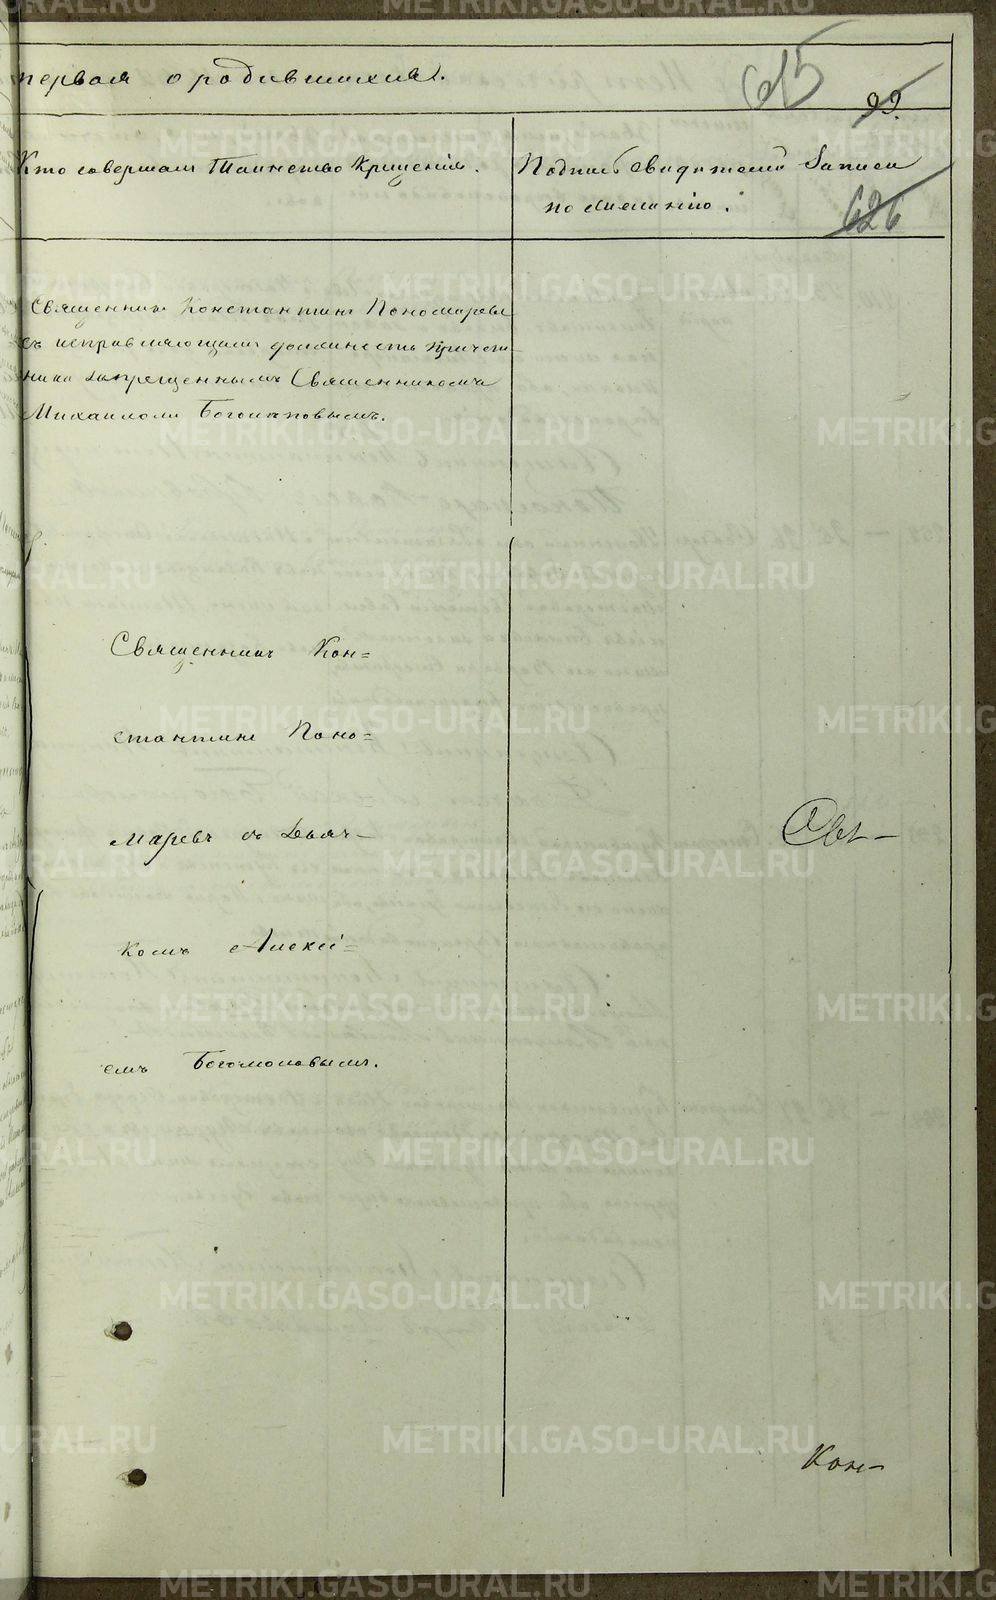 первая о родившихся.
615
99.
Кто совершалъ Таинство Крещенія.
Подпись свидѣтелей записи
по желанію.
626
Священникъ Константинъ Пономаревъ
съ исправляющимъ должность причет-
ника запрещеннымъ Священникомъ
Михаиломъ
Священникъ Кон=
стантинъ Поно=
маревъ съ Дьяч-
комъ Алексѣ=
емъ Богомоловымъ.
Кон-
METRIKI.GASO-URAL.RU